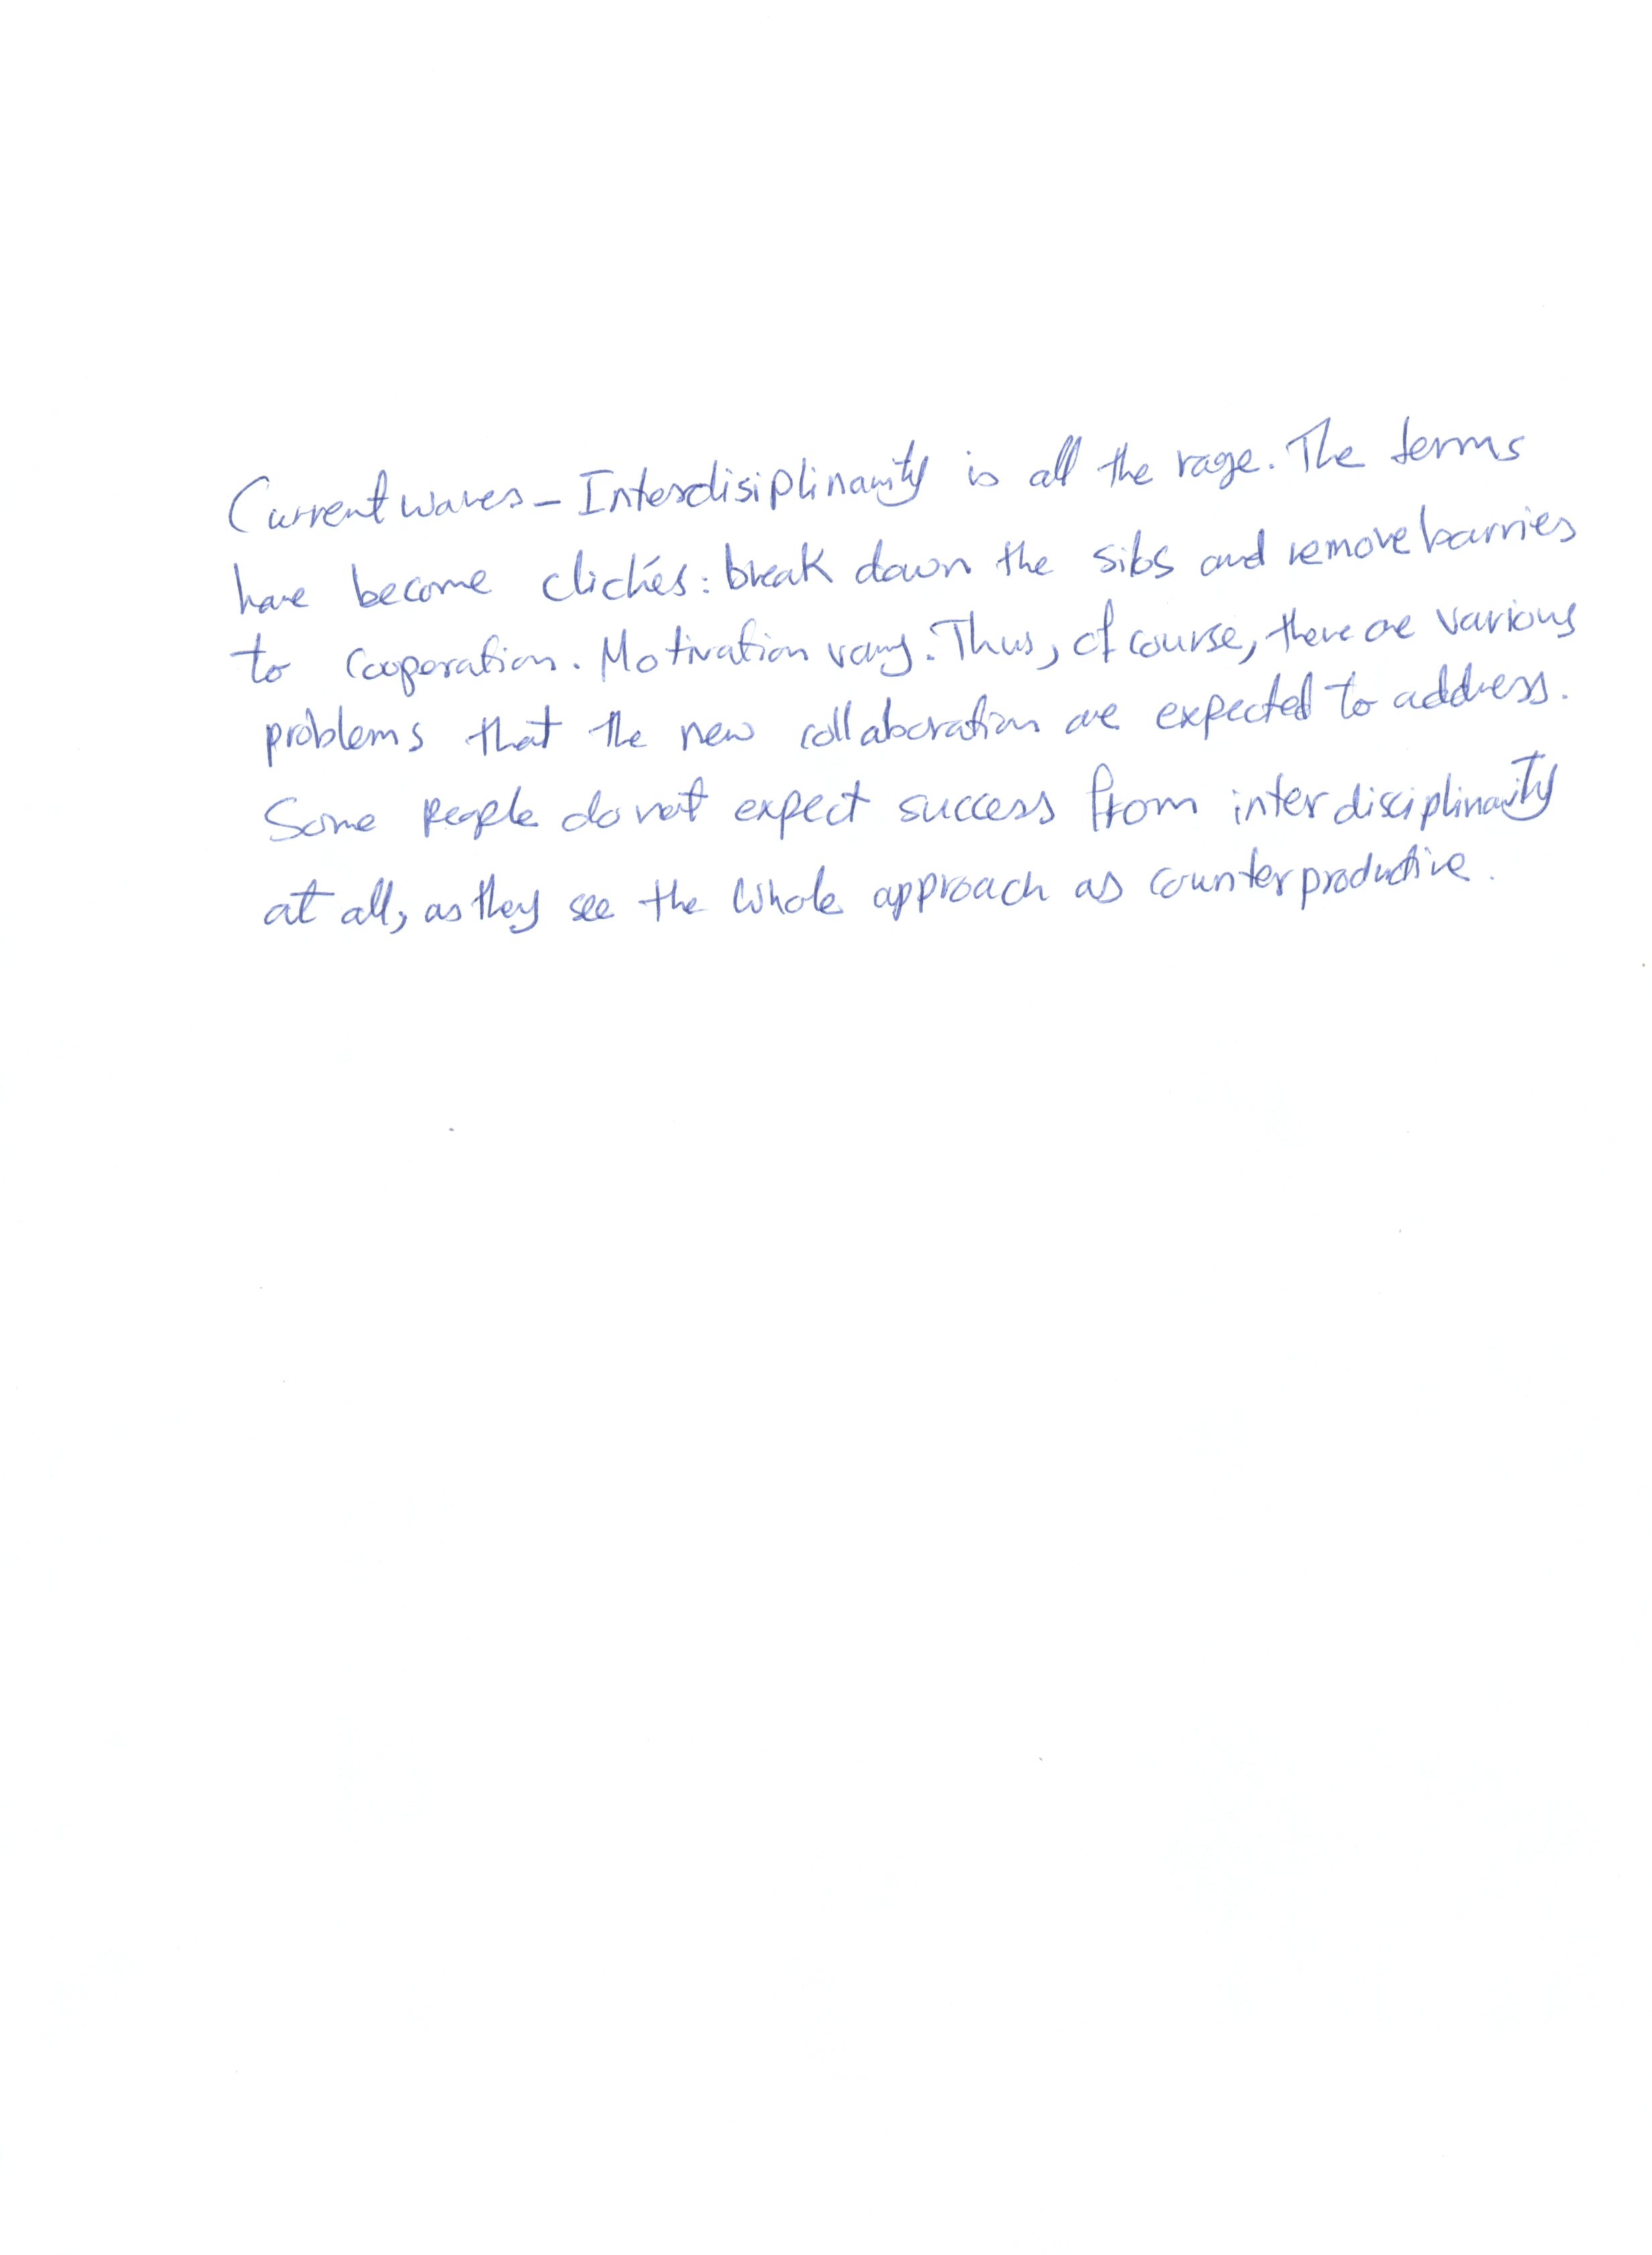 Current waves - Interdisiplinarity is all the rage. The terms
have become clichés: break down the silos and remove barries
to cooperation. Motivation vary. Thus, of course, there are various
problems that the new collaboration are expected to address.
Some people do not expect success from interdisciplinarity
at all, as they see the whole approach as counterproductive.